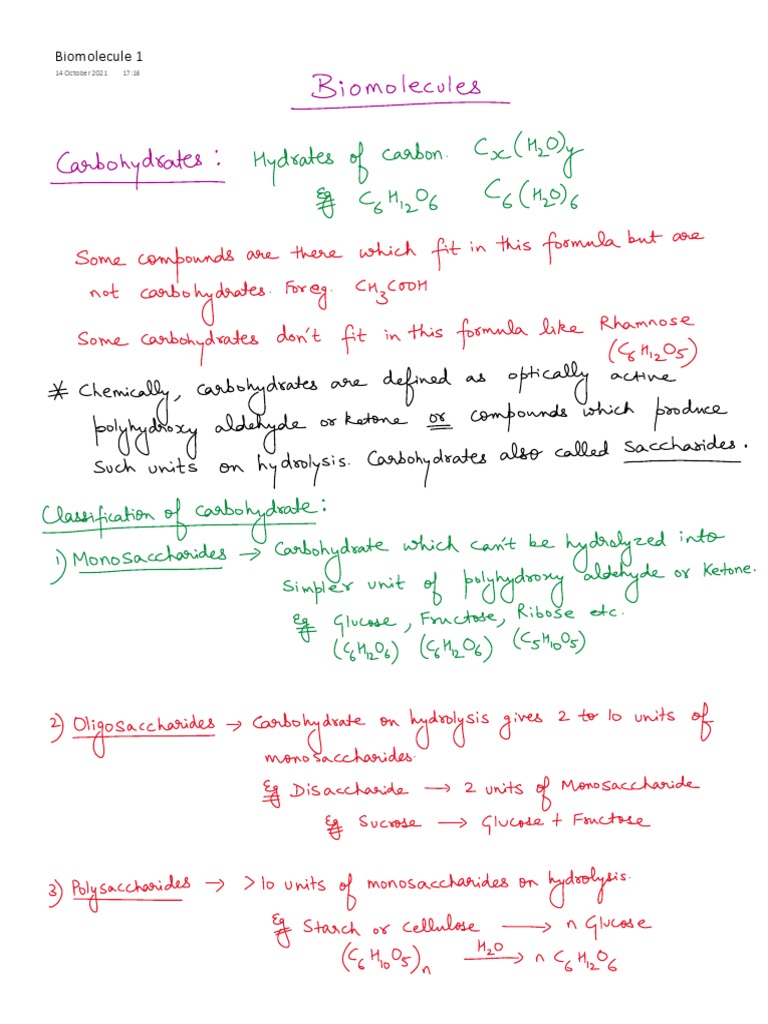 Biomolecule 1
14 October 2021 17:18
Biomolecules
Carbohydrates : Hydrates of carbon. Cx(H2O)y
Eg C6H12O6 C6(H2O)6
Some compounds are there which fit in this formula but are
not carbohydrates. For eg. CH3COOH
Some carbohydrates don't fit in this formula like Rhamnose
(C6H12O5)
* Chemically, carbohydrates are defined as optically active
polyhydroxy aldehyde or ketone or compounds which produce
such units on hydrolysis. Carbohydrates also called saccharides.
Classification of carbohydrate :
1) Monosaccharides → Carbohydrate which can't be hydrolyzed into
simpler unit of polyhydroxy aldehyde or ketone.
Eg Glucose, Fructose, Ribose etc.
(C6H12O6) (C6H12O6) (C5H10O5)
2) Oligosaccharides → Carbohydrate on hydrolysis gives 2 to 10 units of
monosaccharides.
Eg Disaccharide → 2 units of Monosaccharide
Eg Sucrose → Glucose + Fructose
3) Polysaccharides → >10 units of monosaccharides on hydrolysis.
Eg Starch or cellulose → n Glucose
(C6H10O5)n H2O→ n C6H12O6